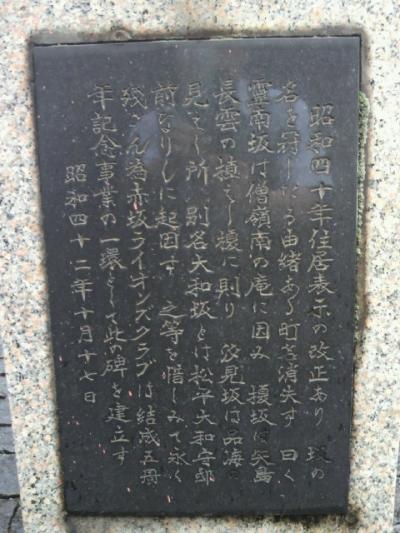 昭和四十年住居表示の改正あり 坂の
名を冠したる由緒ある町名消失す 曰く
霊南坂は僧嶺南の庵に因み 榎坂は矢島
長雲の植えし榎に則り 汐見坂は品海を
見てし所 別名大和坂とは松平大和守邸
前なりしに起因す 之等を惜しみて永く
残さん為赤坂ライオンズクラブは結成五周
年記念事業の一環として此の碑を建立す
昭和四十二年十月十七日